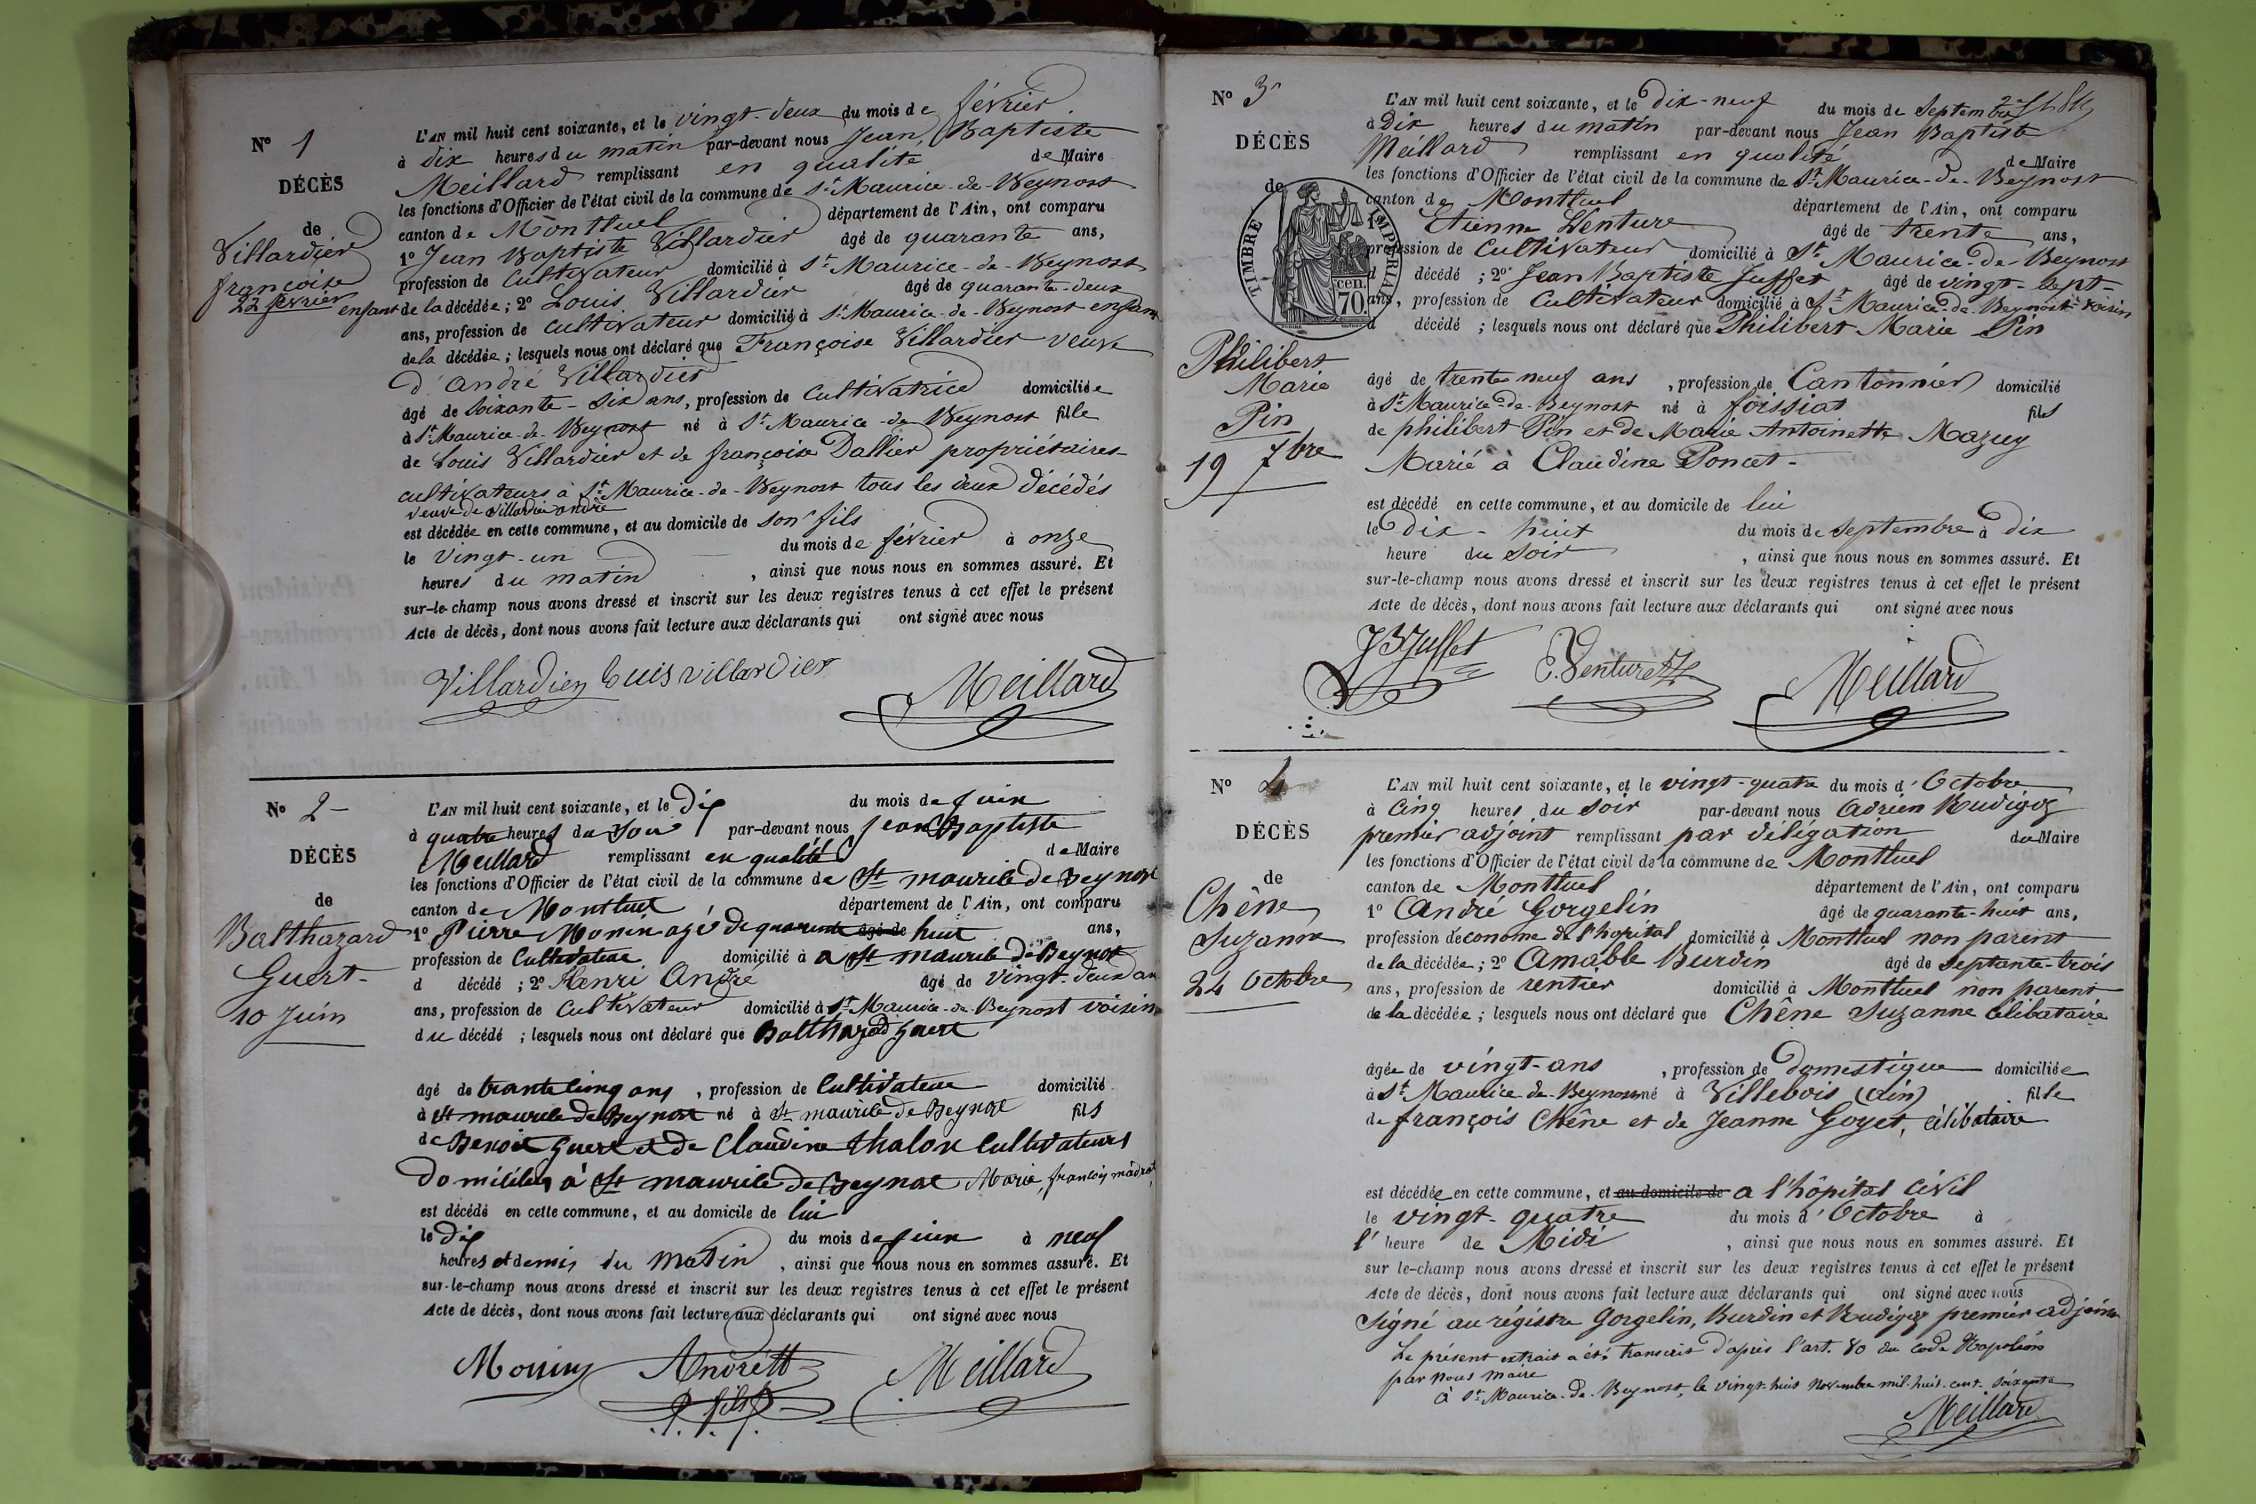 N° 1
DÉCÈS
de
Villardier
françoise
22 février
L'AN mil huit cent soixante, et le vingt-deux du mois de février
à dix heures du matin par-devant nous Jean Baptiste
Meillard remplissant en qualité de Maire
les fonctions d'Officier de l'état civil de la commune de St Maurice-de-Beynost
canton de Montluel département de l'Ain, ont comparu
1° Jean Baptiste Villardier âgé de quarante ans,
profession de Cultivateur domicilié à St Maurice-de-Beynost
enfant de la décédée; 2° Louis Villardier âgé de quarante-deux
ans, profession de cultivateur domicilié à St Maurice-de-Beynost enfant
de la décédée; lesquels nous ont déclaré que Françoise Villardier veuve
d'andré Villardier
âgé de soixante-six ans, profession de Cultivatrice domiciliée
à St Maurice-de-Beynost né à St Maurice-de-Beynost fille
de Louis Villardier et de françoise Dallier propriétaires
cultivateurs à St Maurice-de-Beynost tous les deux décédés
veuve de Villardier andré
est décédée en cette commune, et au domicile de son fils
le vingt-un du mois de février à onze
heures du matin, ainsi que nous nous en sommes assuré. Et
sur-le-champ nous avons dressé et inscrit sur les deux registres tenus à cet effet le présent
Acte de décès, dont nous avons fait lecture aux déclarants qui ont signé avec nous
Villardier Luis villardier Meillard
N° 2
DÉCÈS
de
Balthazard
Guert
10 Juin
L'AN mil huit cent soixante, et le dix du mois de juin
à quatre heures du soir par-devant nous Jean Baptiste
Meillard remplissant en qualité de Maire
les fonctions d'Officier de l'état civil de la commune de St maurice de Beynost
canton de Montluel département de l'Ain, ont comparu
1° Pierre Monin agé de quarante âgé de huit ans,
profession de Cultivateur domicilié à a St maurice de Beynost
d décédé; 2° Henri André âgé de vingt-deux ans
ans, profession de Cultivateur domicilié à St Maurice-de-Beynost voisins
du décédé; lesquels nous ont déclaré que Balthazard Guert
âgé de trante cinq ans, profession de Cultivateur domicilié
à St maurice de Beynost né à St maurice de Beynost fils
de Benoit Guert et de Claudine thalon Cultivateurs
domiciliés à St maurice de Beynost Marié françois
est décédé en cette commune, et au domicile de lui
le dix du mois de juin à neuf
heures et demis du matin, ainsi que nous nous en sommes assuré. Et
sur-le-champ nous avons dressé et inscrit sur les deux registres tenus à cet effet le présent
Acte de décès, dont nous avons fait lecture aux déclarants qui ont signé avec nous
Monin André H Meillard
fils
N° 3
DÉCÈS
de
TIMBRE IMPÉRIAL
70 cen.
Philibert
Marie
Pin
19 7bre
L'AN mil huit cent soixante, et le dix-neuf du mois de Septembre
à Dix heures du matin par-devant nous Jean Baptiste
Meillard remplissant en qualité de Maire
les fonctions d'Officier de l'état civil de la commune de St Maurice-de-Beynost
canton de Montluel département de l'Ain, ont comparu
1° Etienne Venture âgé de trente ans,
profession de Cultivateur domicilié à St Maurice-de-Beynost
d décédé; 2° Jean Baptiste Juffet âgé de vingt-sept
ans, profession de Cultivateur domicilié à St Maurice-de-Beynost voisin
d décédé; lesquels nous ont déclaré que Philibert Marie Pin
âgé de trente neuf ans, profession de Cantonnier domicilié
à St Maurice-de-Beynost né à foissiat fils
de philibert Pin et de Marie Antoinette Mazuy
Marié à Claudine Poncet
est décédé en cette commune, et au domicile de lui
le dix-huit du mois de septembre à dix
heure du soir, ainsi que nous nous en sommes assuré. Et
sur-le-champ nous avons dressé et inscrit sur les deux registres tenus à cet effet le présent
Acte de décès, dont nous avons fait lecture aux déclarants qui ont signé avec nous
J B Juffet E. Venture Meillard
N° 4
DÉCÈS
de
Chêne
Suzanne
24 Octobre
L'AN mil huit cent soixante, et le vingt-quatre du mois d'Octobre
à Cinq heures du soir par-devant nous Adrien Rudigoz
premier adjoint remplissant par délégation du Maire
les fonctions d'Officier de l'état civil de la commune de Montluel
canton de Montluel département de l'Ain, ont comparu
1° André Gorgelin âgé de quarante-huit ans,
profession d'econome de l'hopital domicilié à Montluel non parent
de la décédée; 2° Amable Burdin âgé de septante-trois
ans, profession de rentier domicilié à Montluel non parent
de la décédée; lesquels nous ont déclaré que Chêne Suzanne célibataire
âgée de vingt-ans, profession de domestique domiciliée
à St Maurice de-Beynost né à Villebois (Ain) fille
de françois Chêne et de Jeanne Goyet, célibataire
est décédée en cette commune, et au domicile de a l'hôpital Civil
le vingt-quatre du mois d'Octobre à
l'heure de Midi, ainsi que nous nous en sommes assuré. Et
sur le-champ nous avons dressé et inscrit sur les deux registres tenus à cet effet le présent
Acte de décès, dont nous avons fait lecture aux déclarants qui ont signé avec nous
Signé au régistre Gorgelin, Burdin et Rudigoz premier adjoint
Le présent extrait a été transcrit d'après l'art. 80 du Code Napoléon
par nous maire
à St Maurice-de-Beynost, le vingt-huit Novembre mil-huit-cent-soixante
Meillard